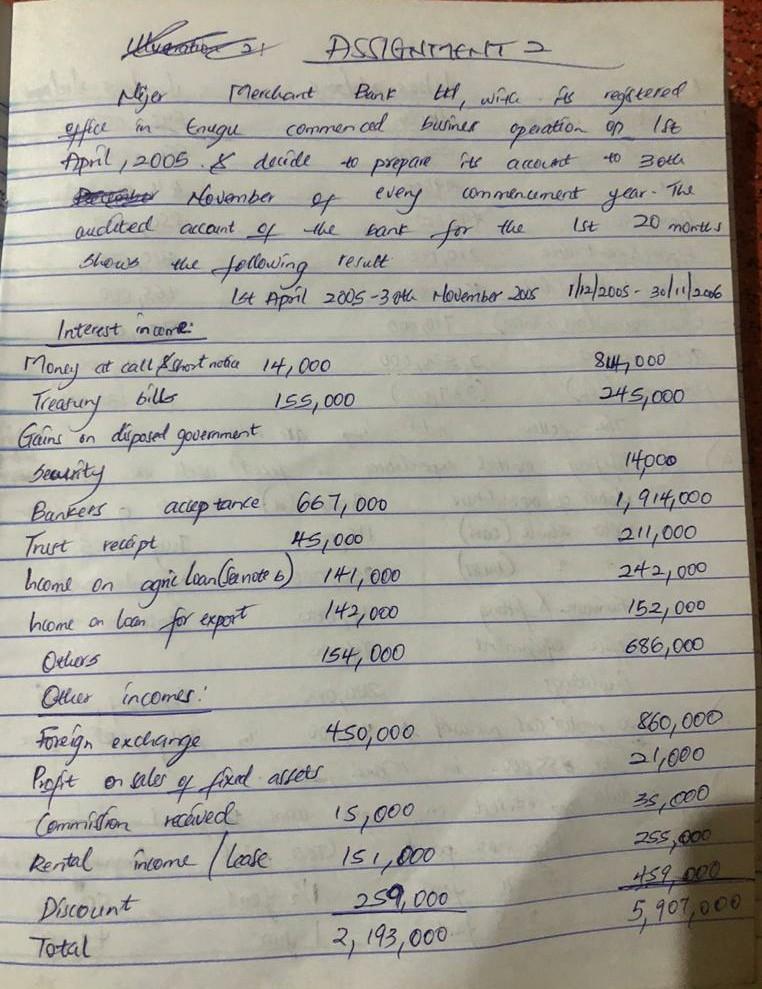 ASSIGNMENT 2
Niger Merchant Bank Ltd, with its registered
office in Enugu commenced busines operation on 1st
April, 2005 & decide to prepare its account to 30th
November of every commencement year. The
audited account of the bank for the 1st 20 months
shows the following result
1st April 2005-30th November 2005 1/12/2005 - 30/11/2006
Interest income:
Money at call & short notice 14,000 814,000
Treasury bills 155,000 245,000
Gains on disposed government
Security 14,000
Bankers acceptance 667,000 1,914,000
Trust receipt 45,000 211,000
Income on agric loan (See note b) 141,000 242,000
Income on loan for export 142,000 152,000
Others 154,000 686,000
Other incomes:
Foreign exchange 450,000 860,000
Profit on sales of fixed assets 21,000
Commission received 15,000 35,000
Rental income / Lease 151,000 255,000
Discount 259,000 459,000
Total 2,193,000 5,907,000